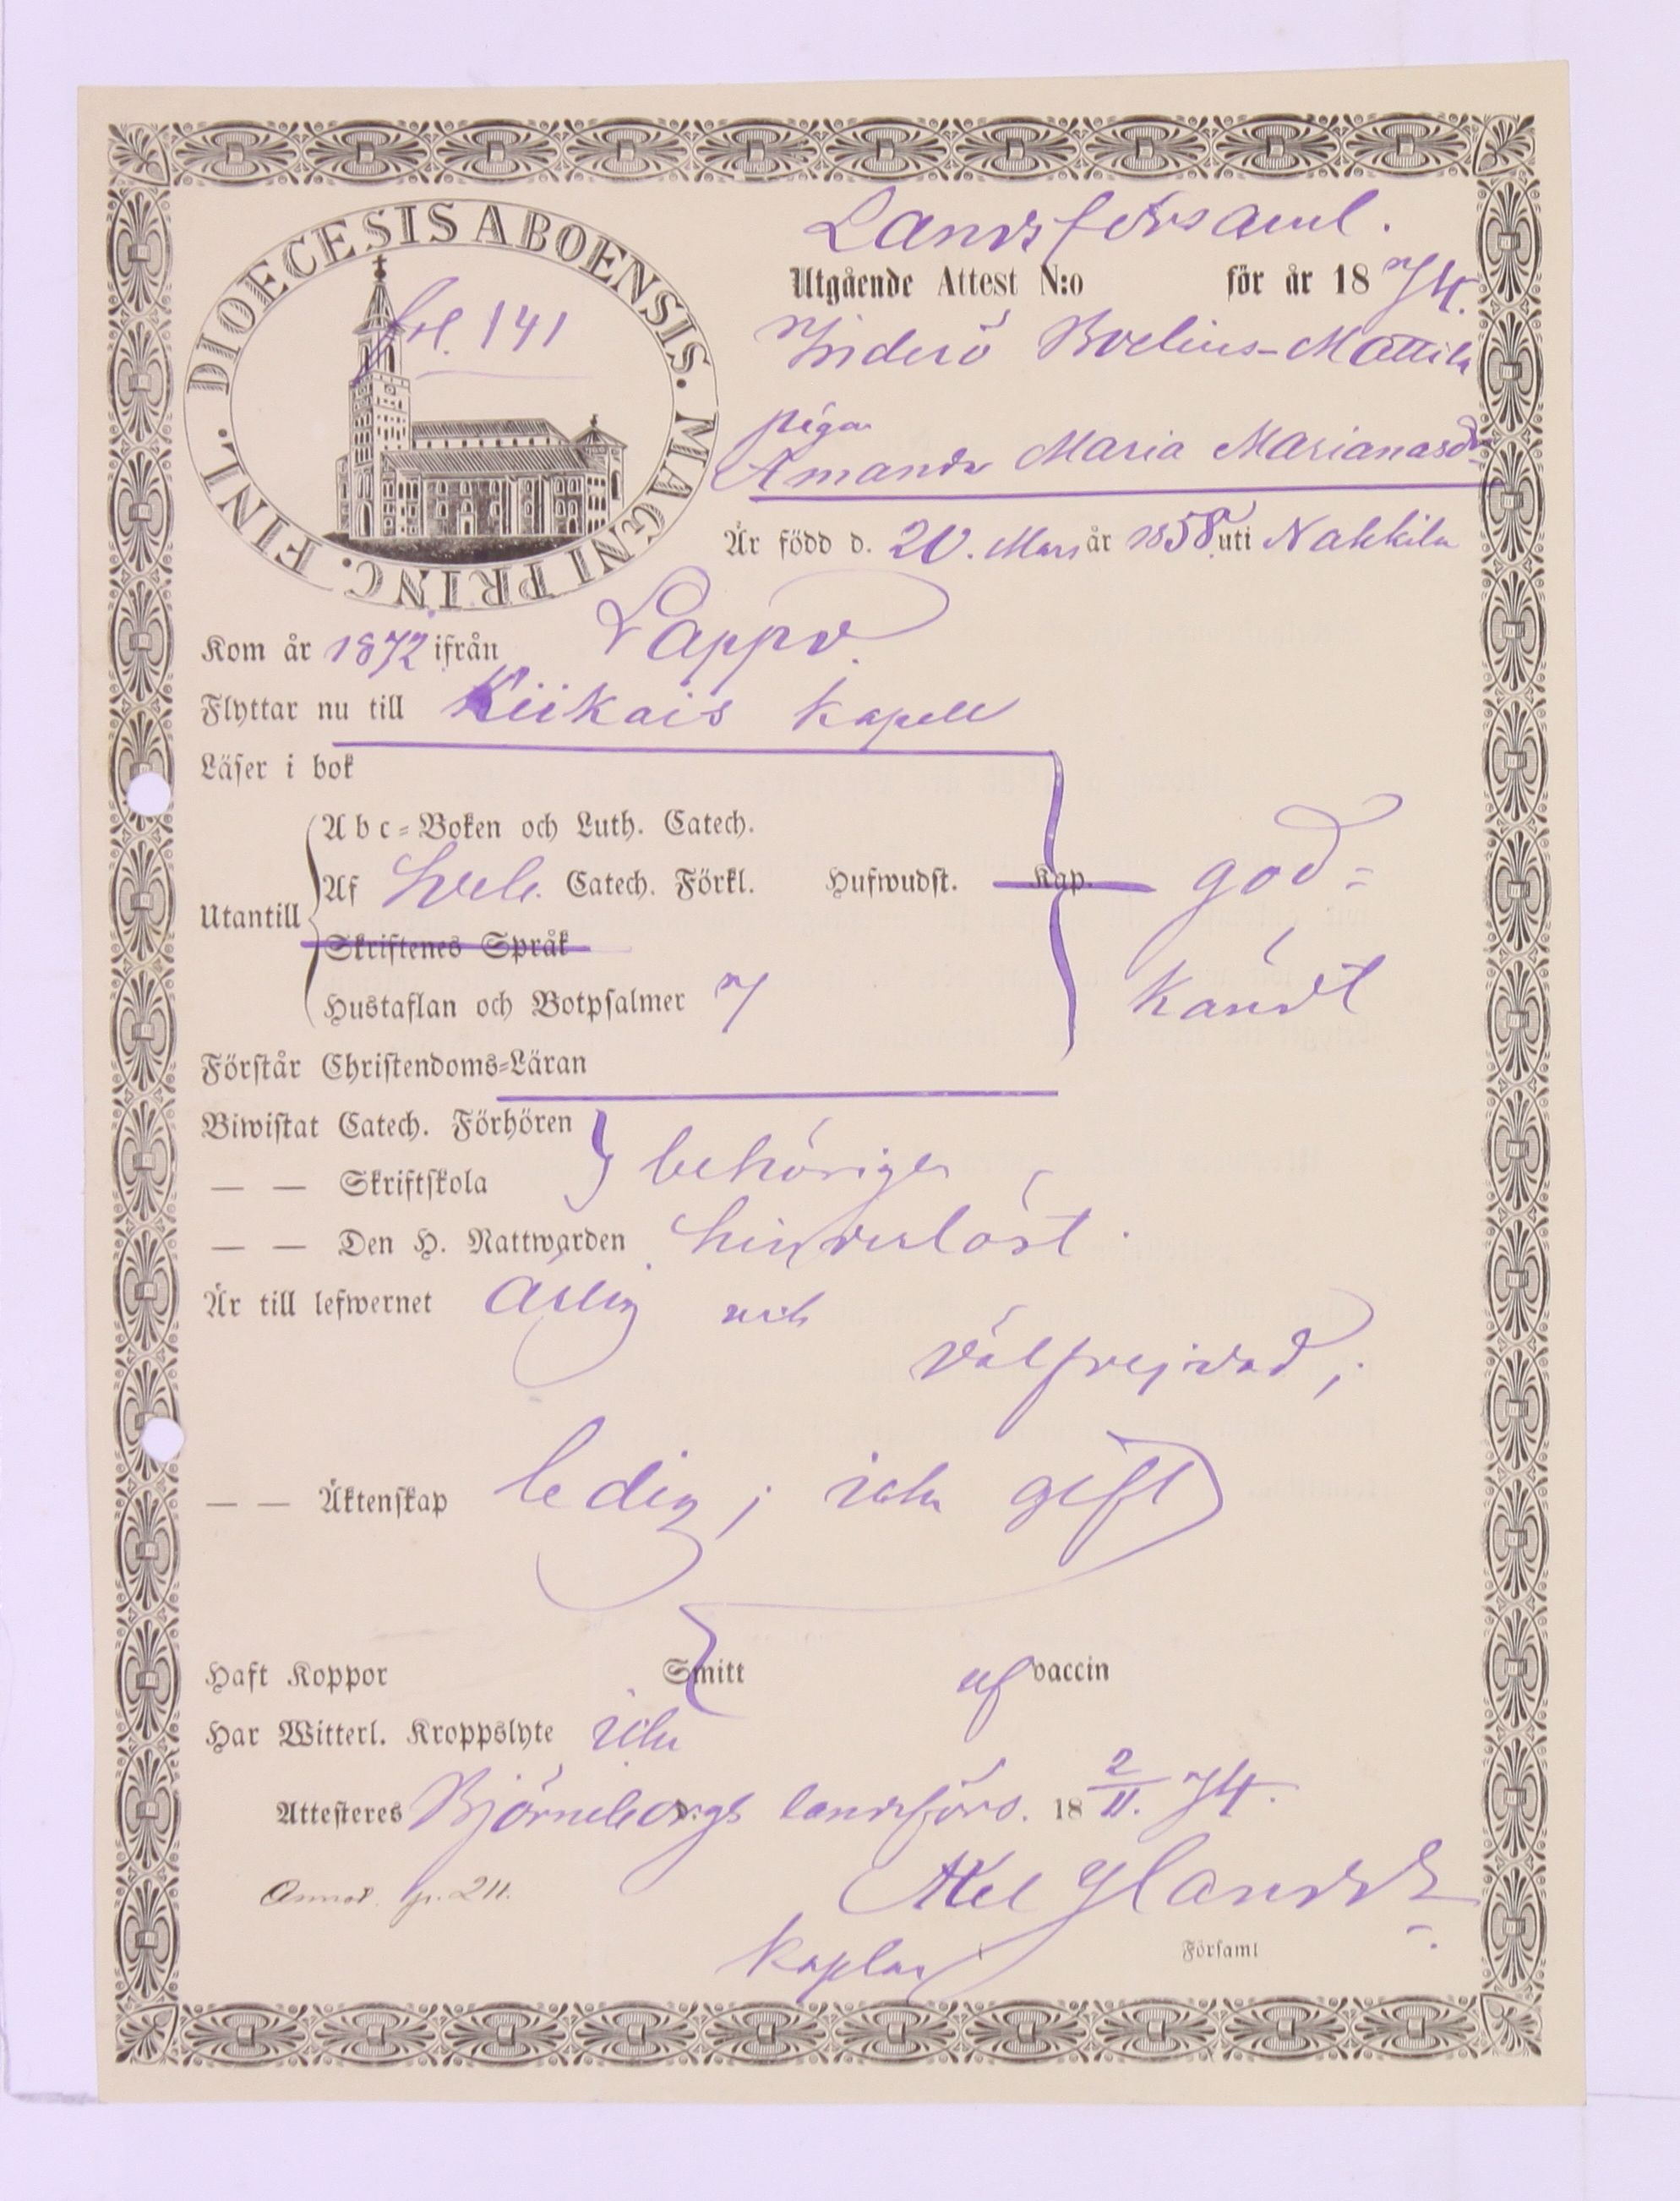 DIOECESIS ABOENSIS. MAGNI PRINC. FINL.
fol. 141
Landsförsaml.
Utgående Attest N:o för år 1874.
Mattila
piga
Amanda Maria Marianasdr
Är född d. 20. Mars år 1858 uti Nakkila
Kom år 1872 ifrån Lappo
Flyttar nu till Kiikais kapell
Läser i bok
Abc-Boken och Luth. Catech.
Utantill
Af hela Catech. Förkl. Hufwudst. Kap.
god-
Skriftenes Språk
Hustaflan och Botpsalmer 7
kändt
Förstår Christendoms-Läran
Biwistat Catech. Förhören
behörigen
— — Skriftskola
— — Den H. Nattwarden hinderlöst.
Är till lefwernet ärlig och
välfrejdad;
— — Äktenskap ledig; icke gift
Haft Koppor Smitt af vaccin
Har Witterl. Kroppslyte icke
Attesteres Björneborgs landsförs. 18 2/11. 74.
Annot. p. 211.
Axel
kaplan
Församl